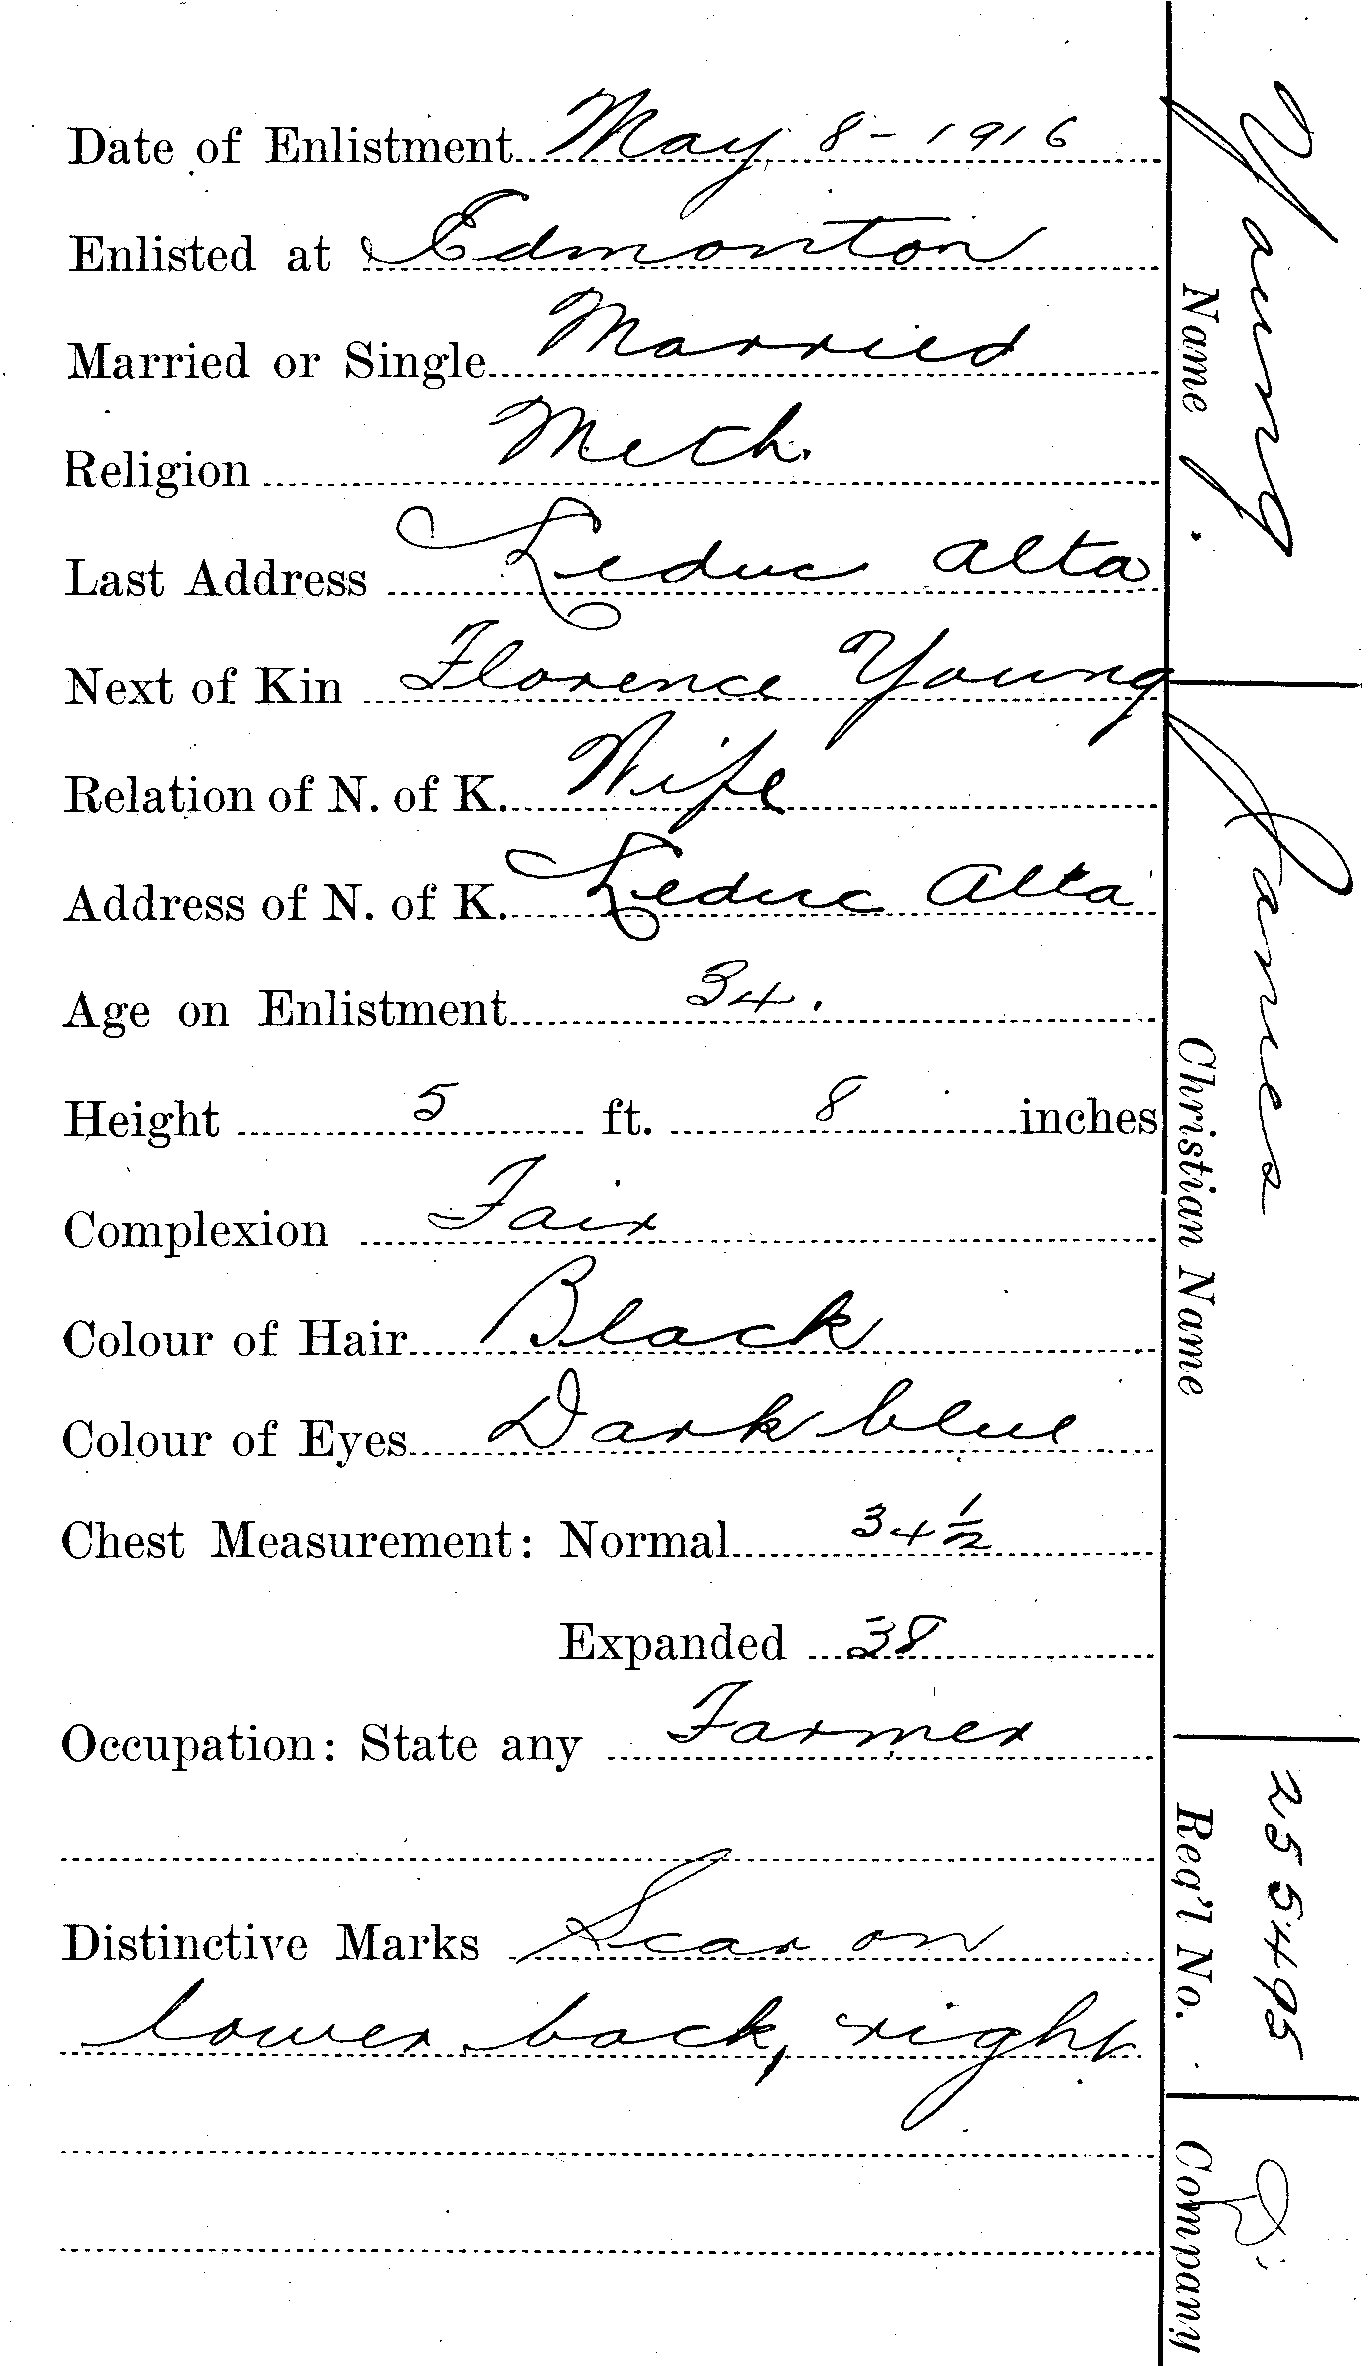 Date of Enlistment May 8 - 1916
Enlisted at Edmonton
Married or Single Married
Religion Meth.
Last Address Leduc Alta
Next of Kin Florence Young
Relation of N. of K. Wife
Address of N. of K. Leduc Alta
Age on Enlistment 34.
Height 5 ft. 8 inches
Complexion Fair
Colour of Hair Black
Colour of Eyes Dark blue
Chest Measurement: Normal 34 ½
Expanded 38
Occupation: State any Farmer
Distinctive Marks Scar on
lower back, right
Young
Name
James
Christian Name
255495
Reg'l No.
Company